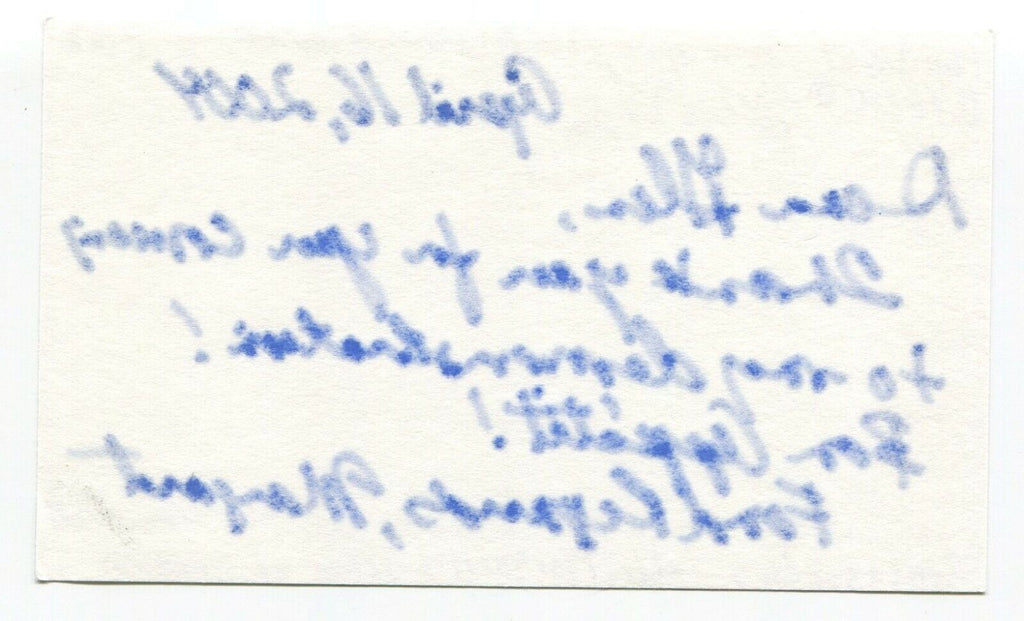 April 16, 2004
Dear Allen,
Thank you for your coming
to my demonstration!
Bon Appétit!
Kind Regards, Margaret